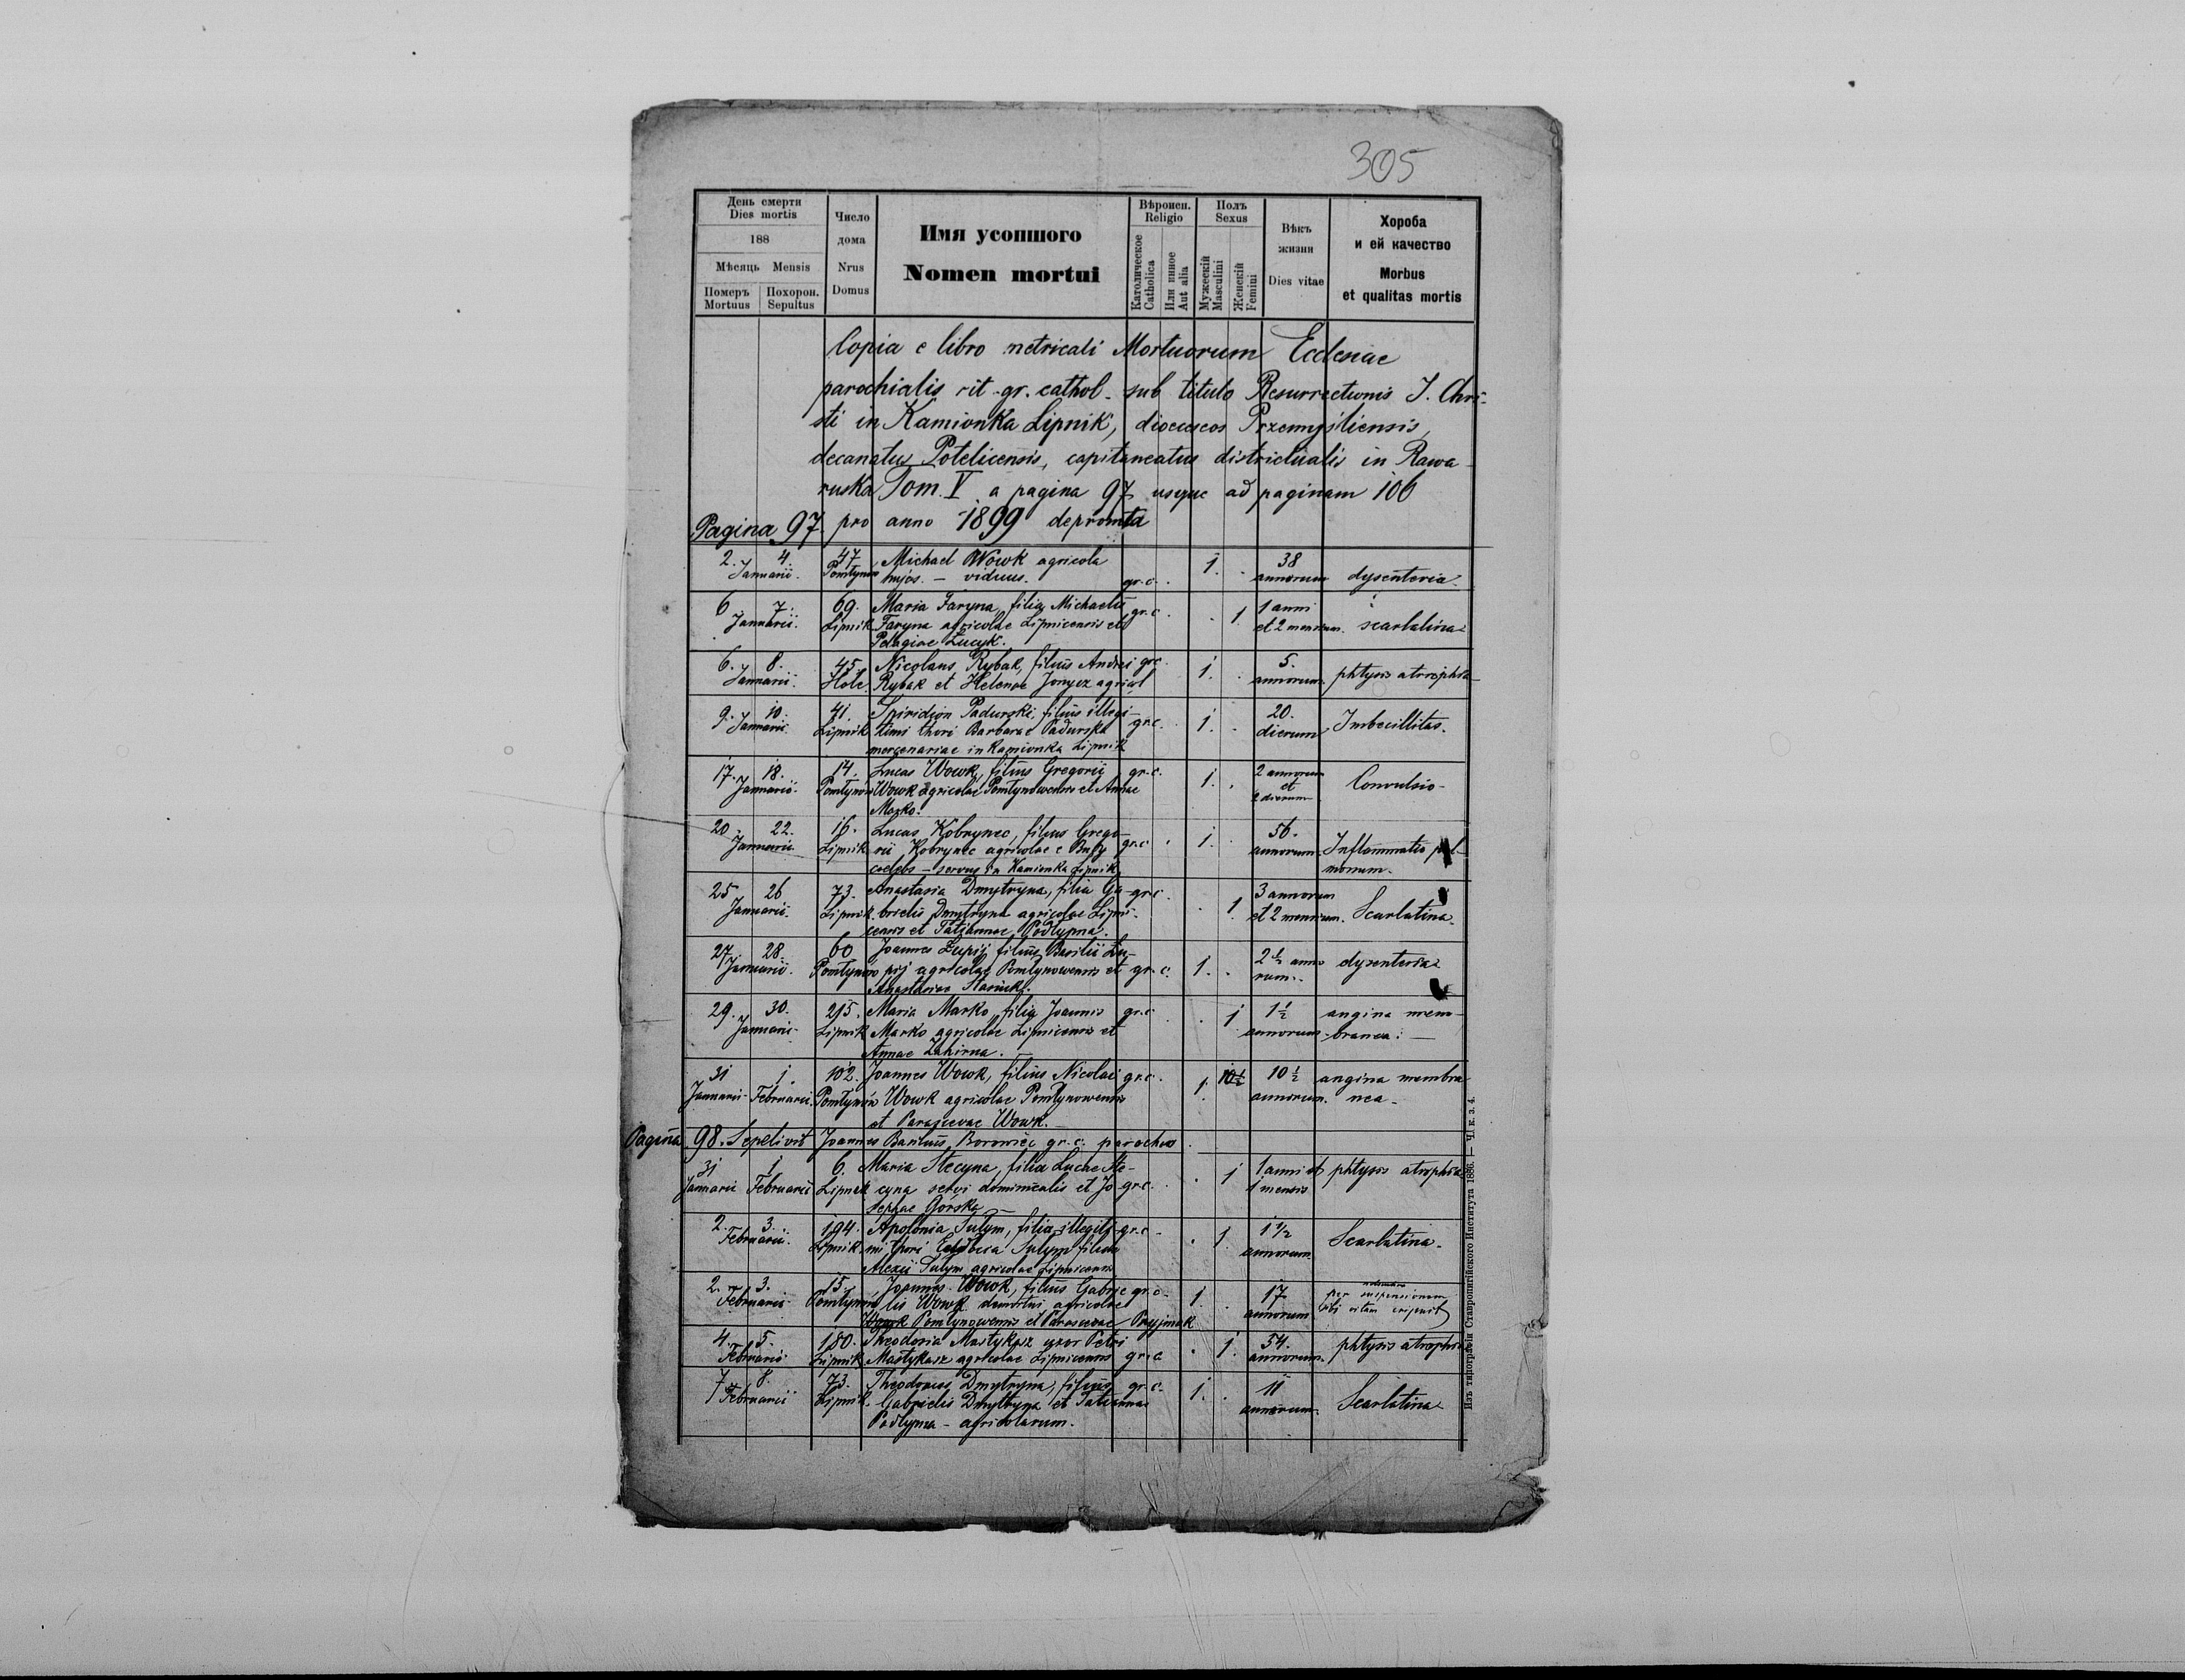 305
День смерти
Dies mortis
188
Мѣсяць Mensis
Померъ Mortuus
Похорон. Sepultus
Число дома
Nrus Domus
Имя усопшого
Nomen mortui
Вѣроисп.
Religio
Католическое
Catholica
Или иное
Aut alia
Полъ
Sexus
Мужескій
Masculini
Женскій
Femini
Вѣкъ жизни
Dies vitae
Хороба
и ей качество
Morbus
et qualitas mortis
Copia e libro metricali Mortuorum Ecclesiae
parochialis rit. gr. cathol. sub titulo Resurrectionis J. Chri-
sti in Kamionka Lipnik, dioeceseos Przemysliensis,
decanatus Potelicensis, capitaneatus districtualis in Rawa
ruska Tom. V a pagina 97 usque ad paginam 106
Pagina 97. pro anno 1899 depromta
2. 4. 47. Michael Wowk agricola 1. 38
Januarii. Pomłynów hujos. – viduus. gr. c. annorum dysenteria
6 7. 69. Maria Faryna, filia Michaelis gr. c. 1 1 anni
Januarii. Lipnik Faryna agricolae Lipnicensis et et 2 mensium. scarlatina
Pelagiae Łucyk.
6. 8. 45. Nicolaus Rybak, filius Andrei gr. c. 1. 5.
Januarii. Hole. Rybak et Helenae Jonycz agricol annorum phtysis atrophia
9. 10. 41. Spiridion Padurski, filius illegi- gr. c. 1. 20.
Januarii. Lipnik timi thori Barbarae Padurska dierum Imbecillitas.
mercenariae in Kamionka Lipnik
17. 18. 14. Lucas Wowk, filius Gregorii gr. c. 1. 2 annorum
Januarii. Pomłynów Wowk agricolae Pomłynowensis et Annae et Convulsio
Marko. 2 dierum
20. 22. 16. Lucas Kobrynec, filius Grego- gr. c. 1. 56.
Januarii. Lipnik rii Kobrynec agricolae e annorum. Inflammatio pul-
coelebs – servus in Kamionka Lipnik monum.
25 26 73. Anastasia Dmytryna, filia Ga- gr. c. 1 3 annorum
Januarii. Lipnik. brielis Dmytryna agricolae Lipni- et 2 mensium. Scarlatina
censis et Tatiannae Podłypna.
27 28. 60 Joannes Łupij filius Basilii Łu- gr. c. 1. 2 ½ anno
Januarii. Pomłynów pij agricolae Pomłynowensis et rum. dysenteria
Anastasiae
29. 30. 215. Maria Marko, filia Joannis gr. c. 1 1 ½ angina mem-
Januarii. Lipnik Marko agricolae Lipnicensis et annorum branea.
Annae Zahirna.
31 1. 102. Joannes Wowk, filius Nicolai gr. c. 1. 10 ½ 10 ½ angina membra
Januarii Februarii. Pomłynów Wowk agricolae Pomłynowensis annorum. nea
et Parascevae Wowk.
Pagina 98. Sepelivit Joannes Basilius Borowiec gr. c. parochus.
31 1 6. Maria Stecyna, filia Lucae Ste- 1 1 anni et phtysis atrophia
Januarii Februarii Lipnik cyna servi dominicalis et Jo gr. c. 1 mensis
sephae Górska
2. 3. 194. Apolonia Sułym, filia illegiti- gr. c. 1. 1 ½
Februarii. Lipnik. mi thori Sułym filiae annorum Scarlatina
Alexii Sułym agricolae Lipnicensis
2. 3. 15. Joannes Wowk, filius Gabrie gr. c. 1. 17 per suspensionem
Februarii. Pomłynów lis Wowk demortui agricolae annorum sibi vitam eripuit
Wowk Pomłynowensis et Parascevae Pryjmak
4. 5. 180. Theodosia Mastykasz uxor Petri 1. 54. phtysis atrophia
Februarii. Lipnik Mastykasz agricolae Lipnicensis gr. c. annorum.
7 8. 73. Theodorus Dmytryna, filius gr. c. 1. 11
Februarii Lipnik. Gabrielis Dmytryna et Tatiannae annorum. Scarlatina
Podłypna – agricolarum.
Изъ типографіи Ставропигійского Института 1886. — Ч. к. з. 4.